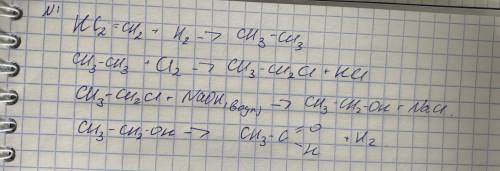 N1
HC₂=CH₂ + H₂ → CH₃-CH₃
CH₃-CH₃ + Cl₂ → CH₃-CH₂Cl + HCl
CH₃-CH₂Cl + NaOH(водн) → CH₃-CH₂-OH + NaCl.
CH₃-CH₂-OH → CH₃-C =O -H + H₂